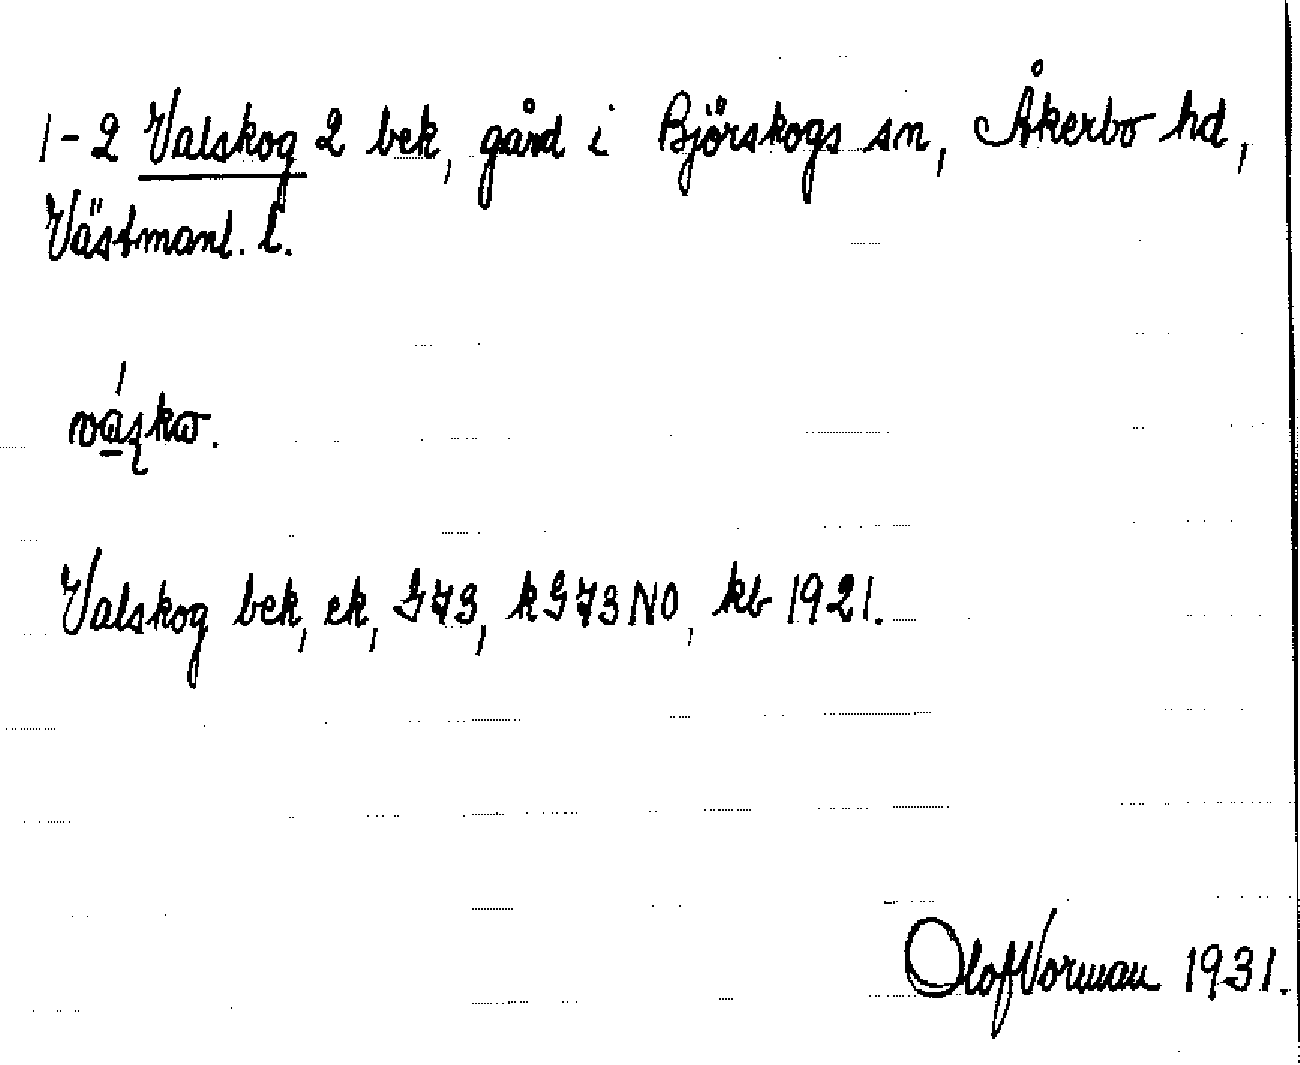 1-2 Valskog 2 bek, gård i Björskogs sn, Åkerbo hd,
Västmanl. l.
Valskog bek, ek, G73, kG73NO, kb 1921.
Olof Vorman 1931.